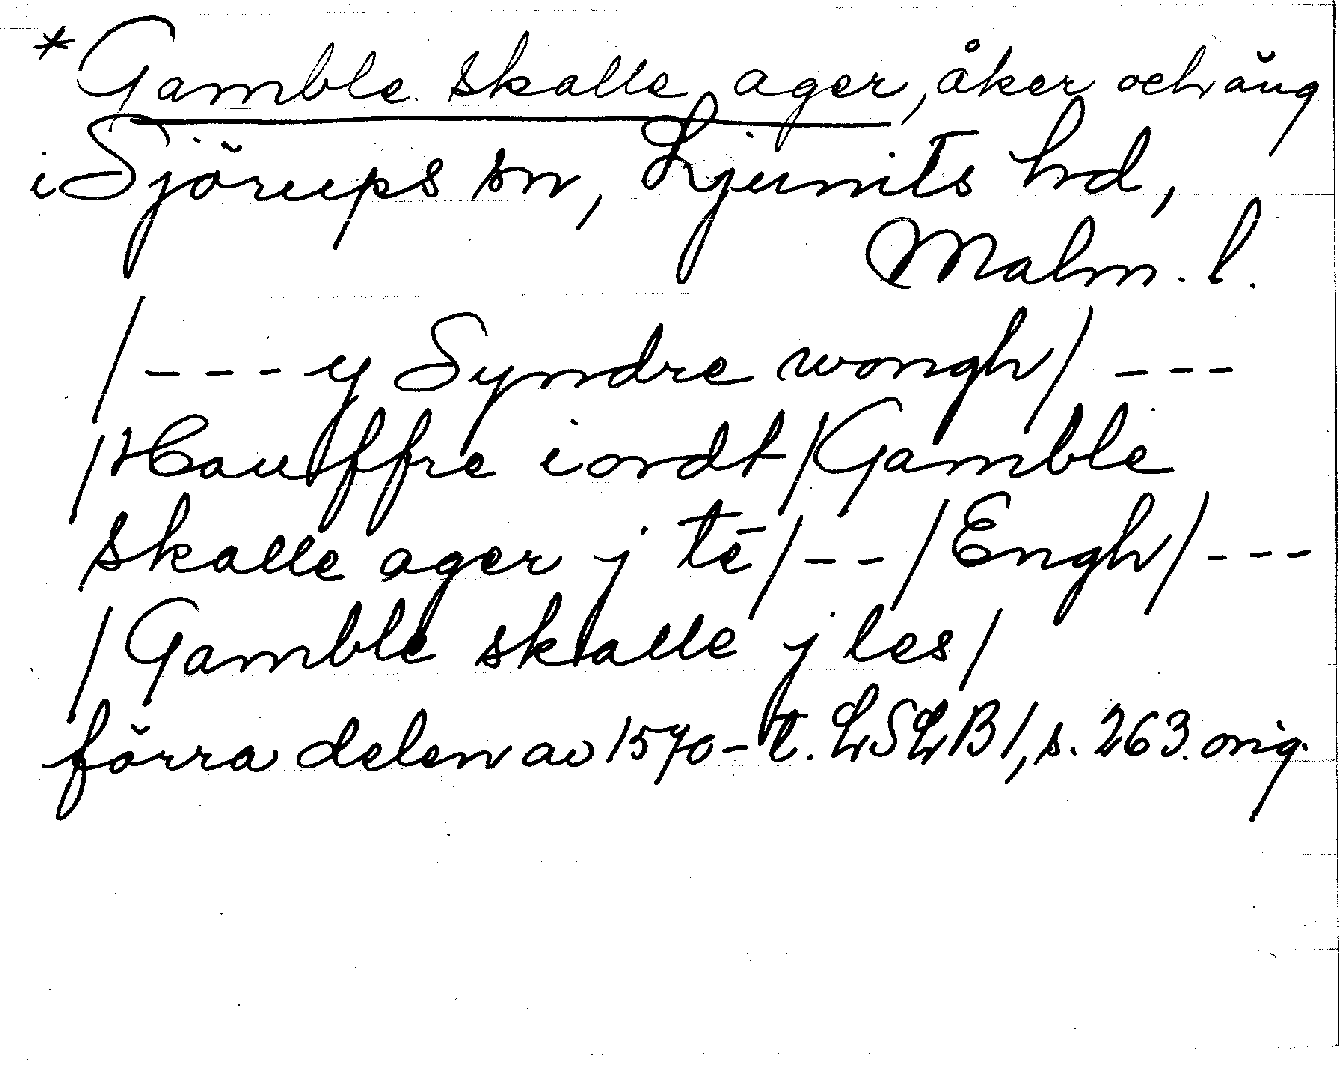 *Gamble skalle ager, åker och äng
i Sjörups sn, Ljunits hd,
Malm. l.
/---y Syndre wongh/ ---
/Hauffre iordt/Gamble
skalle ager j tē/--/Engh/---
/Gamble skalle j les/
förra delen av 1570-t. LSLB1, s. 263. orig.